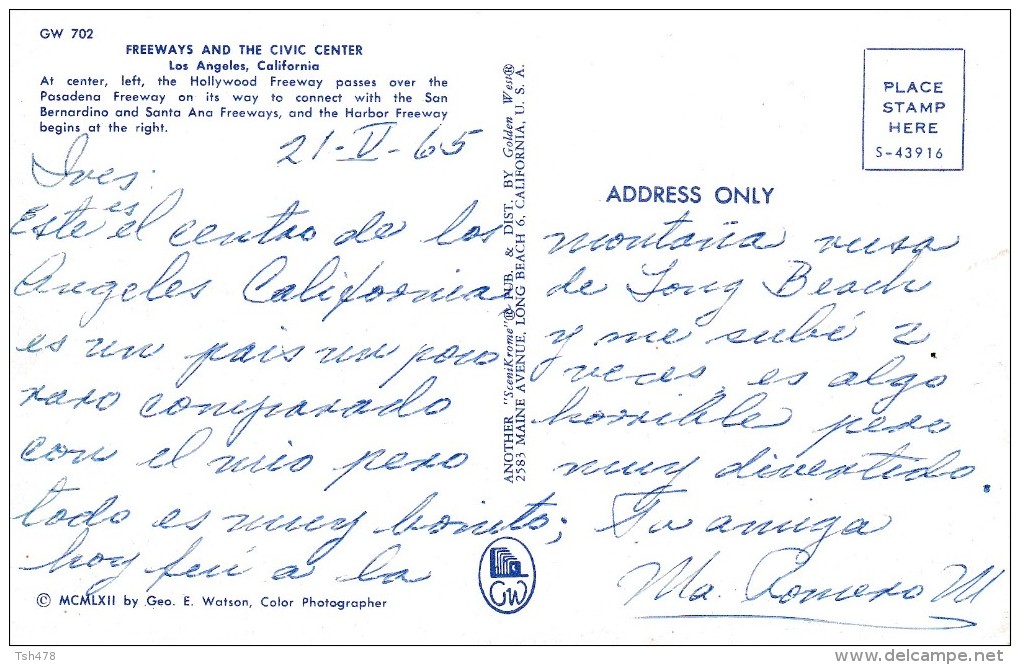 GW 702
FREEWAYS AND THE CIVIC CENTER
Los Angeles, California
At center, left, the Hollywood Freeway passes over the
Pasadena Freeway on its way to connect with the San
Bernardino and Santa Ana Freeways, and the Harbor Freeway
begins at the right.
21-V-65
Ives:
es
Este el centro de los
Angeles California
es un pais un poco
raro comparado
con el mio pero
todo es muy bonito;
hoy fui a la
© MCMLXII by Geo. E. Watson, Color Photographer
ANOTHER "SceniKrome"® PUB. & DIST. BY Golden West®
2583 MAINE AVENUE, LONG BEACH 6, CALIFORNIA, U. S. A.
GW
PLACE
STAMP
HERE
S-43916
ADDRESS ONLY
montaña rusa
de Long Beach
y me subé 2
veces, es algo
horrible pero
muy divertido.
Tu amiga
Ma. Romero M
Tsh478
delcampe.net